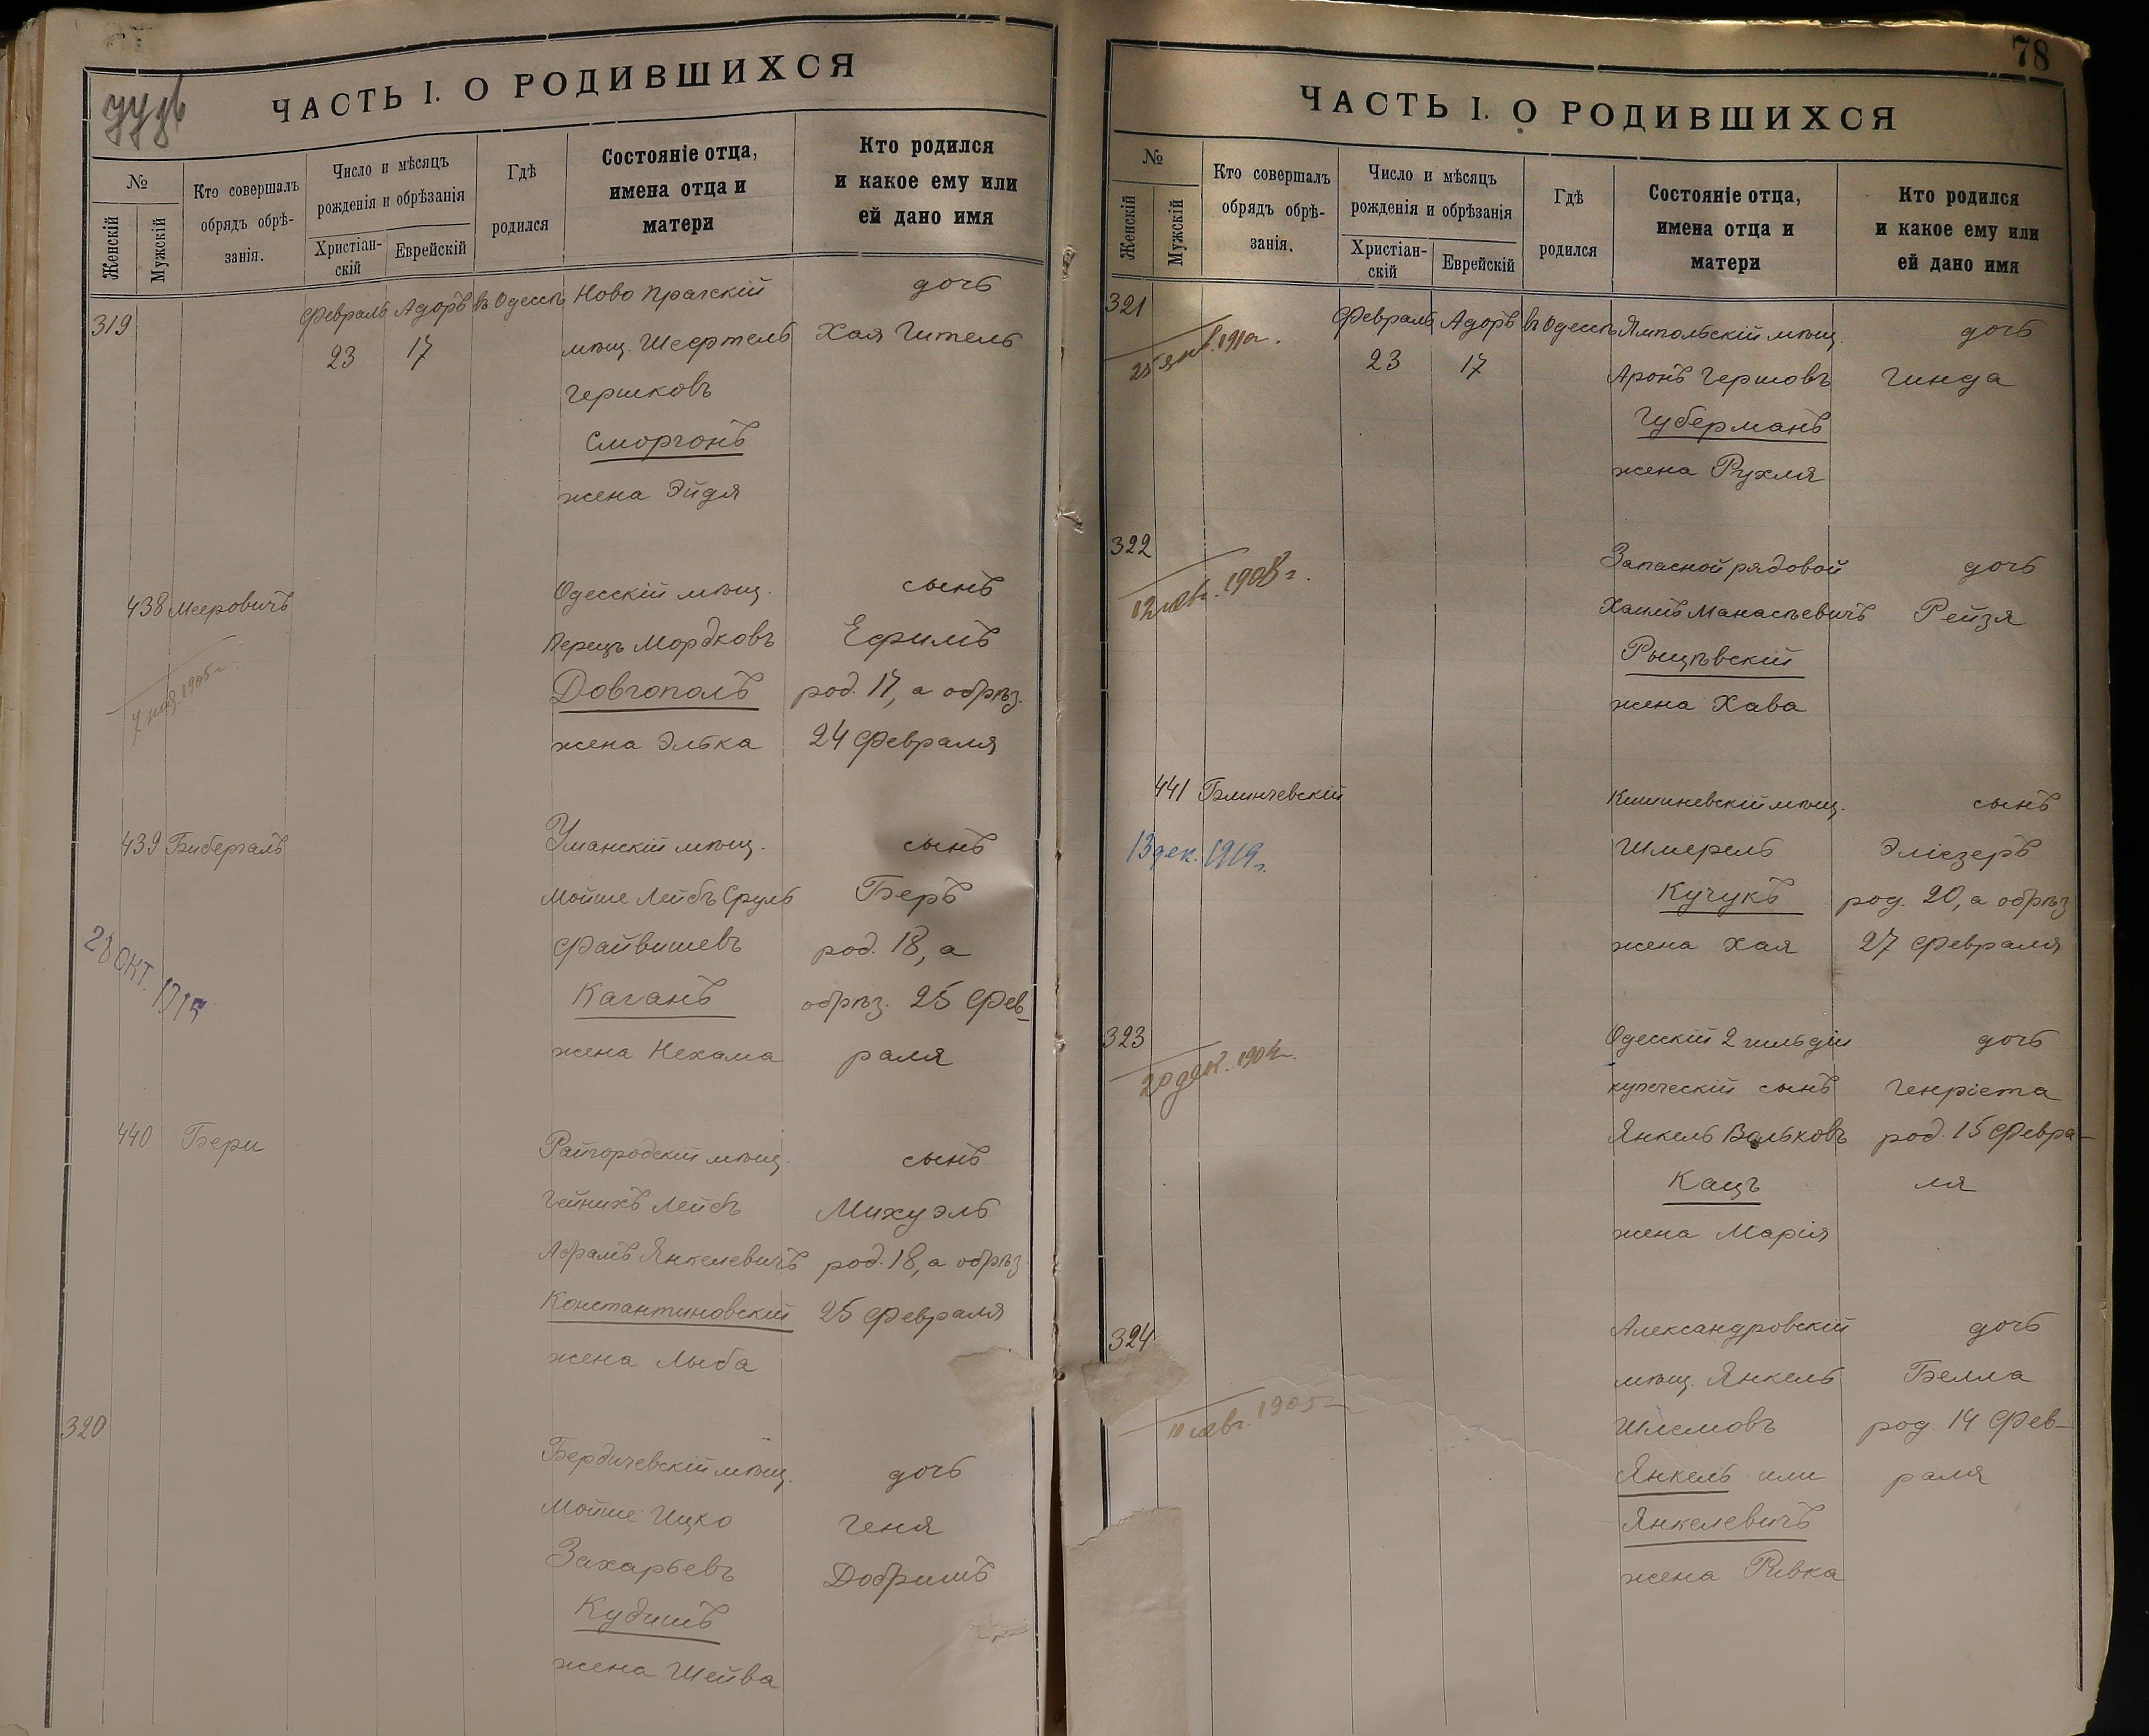 ЧАСТЬ I. О РОДИВШИХСЯ
№
Женскій
Мужскій
Кто совершалъ обрядъ обрѣ-занія.
Число и мѣсяцъ рожденія и обрѣзанія
Христіан-скій
Еврейскій
Гдѣ родился
Состояніе отца, имена отца и матери
Кто родился и какое ему или ей дано имя
319 Февраль Адоръ въ Одессѣ Ново Прагскій дочь
23 17 мѣщ. Шефтель Хая Гитель
Гершковъ
Сморгонъ
жена Эйдя
438 Мееровичъ Одесскій мѣщ. сынъ
Перецъ Мордковъ Ефимъ
Довгополъ род. 17, а обрѣз.
жена Элька 24 февраля
439 Бибергалъ Уманскій мѣщ. сынъ
Мойше Лейбъ Сруль Беръ
Файвишевъ род. 18, а
28 ОКТ.
Каганъ обрѣз. 25 Фев-
жена Нехама раля
440 Бери Райгородскій мѣщ. сынъ
Гейнихъ Лейбъ Михуэль
Абрамъ Янкелевичъ род. 18, а обрѣз
Константиновскій 25 Февраля
жена Лыба
320 Бердичевскій мѣщ. дочь
Мойше Ицко Геня
Захарьевъ Добришъ
Кудишъ
жена Шейва
78
ЧАСТЬ I. О РОДИВШИХСЯ
№
Женскій
Мужскій
Кто совершалъ обрядъ обрѣ-занія.
Число и мѣсяцъ рожденія и обрѣзанія
Христіан-скій
Еврейскій
Гдѣ родился
Состояніе отца, имена отца и матери
Кто родился и какое ему или ей дано имя
321 Февраль Адоръ въ Одессѣ Ямпольскій мѣщ. дочь
23 17 Аронъ Гершовъ Гинда
Губерманъ
жена Рухля
322 Запасной рядовой дочь
1908 г.
Хаимъ Манасьевичъ Рейзя
Рыщѣвскій
жена Хава
441 Блинчевскій Кишиневскій мѣщ. сынъ
13 дек. 1919 г. Шмерель Эліезеръ
Кучукъ род. 20, а обрѣз
жена Хая 27 февраля
323 Одесскій 2 гильдіи дочь
20 дек. 1904 г.
купеческій сынъ Генріета
Янкель Вольковъ род. 15 Февра-
Кацъ ля
жена Марія
324 Александровскій дочь
мѣщ. Янкель Белла
1905 г.
Шлемовъ род. 14 Фев-
Янкель или раля
Янкелевичъ
жена Ривка